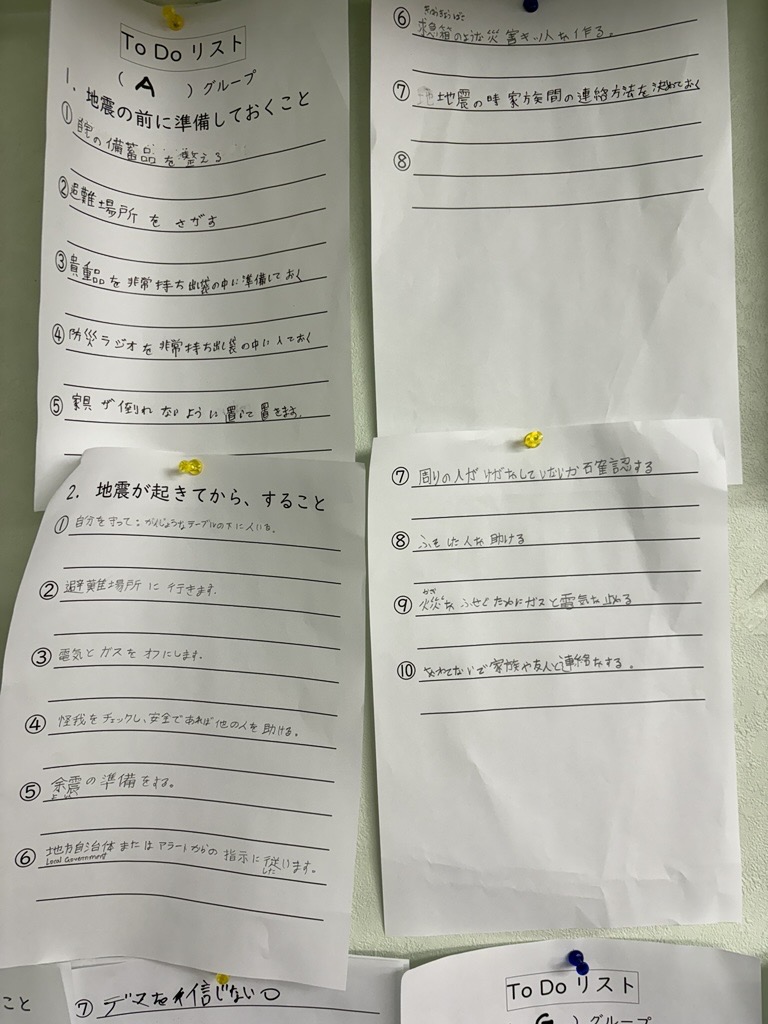 To Do リスト
( A )グループ
1. 地震の前に準備しておくこと
① 自宅の備蓄品を整える
② 避難場所をさがす
③ 貴重品を非常持ち出し袋の中に準備しておく
④ 防災ラジオを非常持ち出し袋の中に入ておく
⑤ 家具が倒れないように置いて置きます。
⑥ のような災害キットを作る。
⑦ 地震の時家族間の連絡方法を決めておく
⑧
2. 地震が起きてから、すること
① 自分を守って:がんじょうなテーブルの下に入いる。
② 避難場所に行きます.
③ 電気とガスをオフにします.
④ 怪我をチェックし、安全であれば他の人を助ける。
⑤ 余震の準備をする。
よしん
⑥ 地方自治体またはアラートからの指示に従います。
Local Government
した
⑦ 周りの人がけがをしていないか確認する
⑧ した人を助ける
かさい
⑨ 火災を ふせぐためにガスと電気を止める
⑩ あわてないで家族や友人と連絡をする。
こと
⑦ デマを信じない○
To Do リスト
( G )グループ